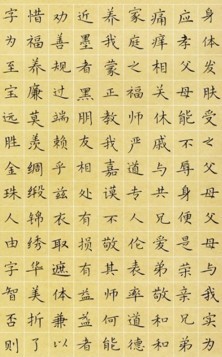 身体发肤受之父母父母与我实为
应孝父母能不辱身便是荣亲兄弟
痛痒相关休戚与共兄爱弟敬和和
家庭之福师严道专人伦表率道德
养我蒙正教我嘉谟不敬其师何能
近墨者黑朋友相处有损有益益者
劝善规过端赖乎兹衣取遮体兼以
惜福养廉莫羡绸缎锦绣华美折了
字为至宝远胜金珠人由字智否则